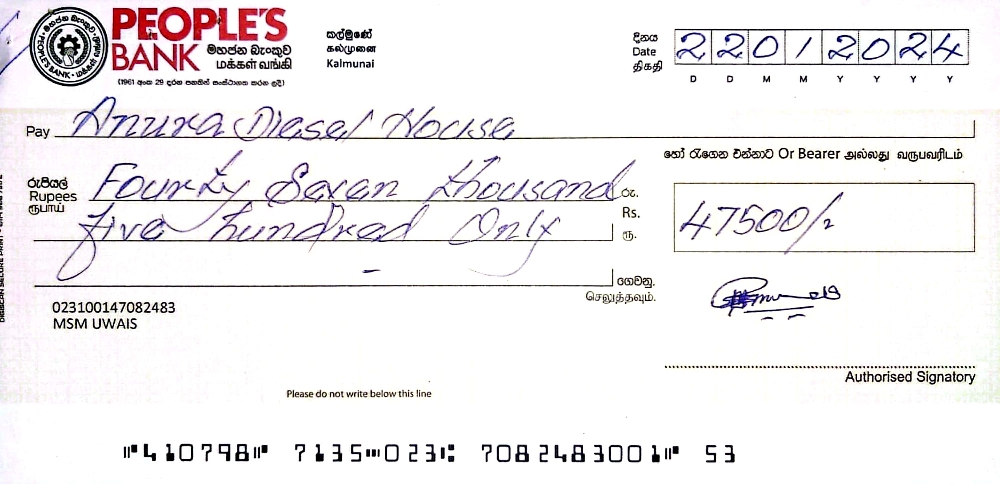 PEOPLE'S
BANK මහජන බැංකුව
மக்கள் வங்கி
(1961 අංක 29 දරන පනතින් සංස්ථාගත කරන ලදී)
PEOPLE'S BANK
කල්මුණේ
கல்முனை
Kalmunai
දිනය
Date
திகதி
22012024
D D M M Y Y Y Y
Pay Anura Diesel House
හෝ රැගෙන එන්නාට Or Bearer அல்லது வருபவரிடம்
රුපියල්
Rupees
ரூபாய்
Fourty Seven thousand
five hundred Only
රු.
Rs.
ரூ.
47500/=
ගෙවනු.
செலுத்தவும்.
023100147082483
MSM UWAIS
Authorised Signatory
Please do not write below this line
⑈410798⑈ 7135⑉023⑆ 7082483001⑈ 53